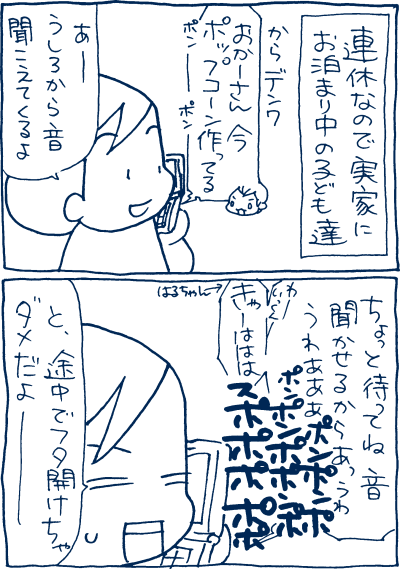 連休なので実家に
お泊まり中の子ども達
からデンワ
おかーさん 今
ポップコーン作ってる
ポン ポン
あーー
うしろから音
聞こえてくるよ
ちょっと待ってね 音
聞かせるから あっうわ
うわぁぁぁ
わい
きゃーははは
はるちゃん→
ポンポンポンポ
ポンポンポンポ
スポポポポポ
と、途中でフタ開けちゃ
ダメだよーー